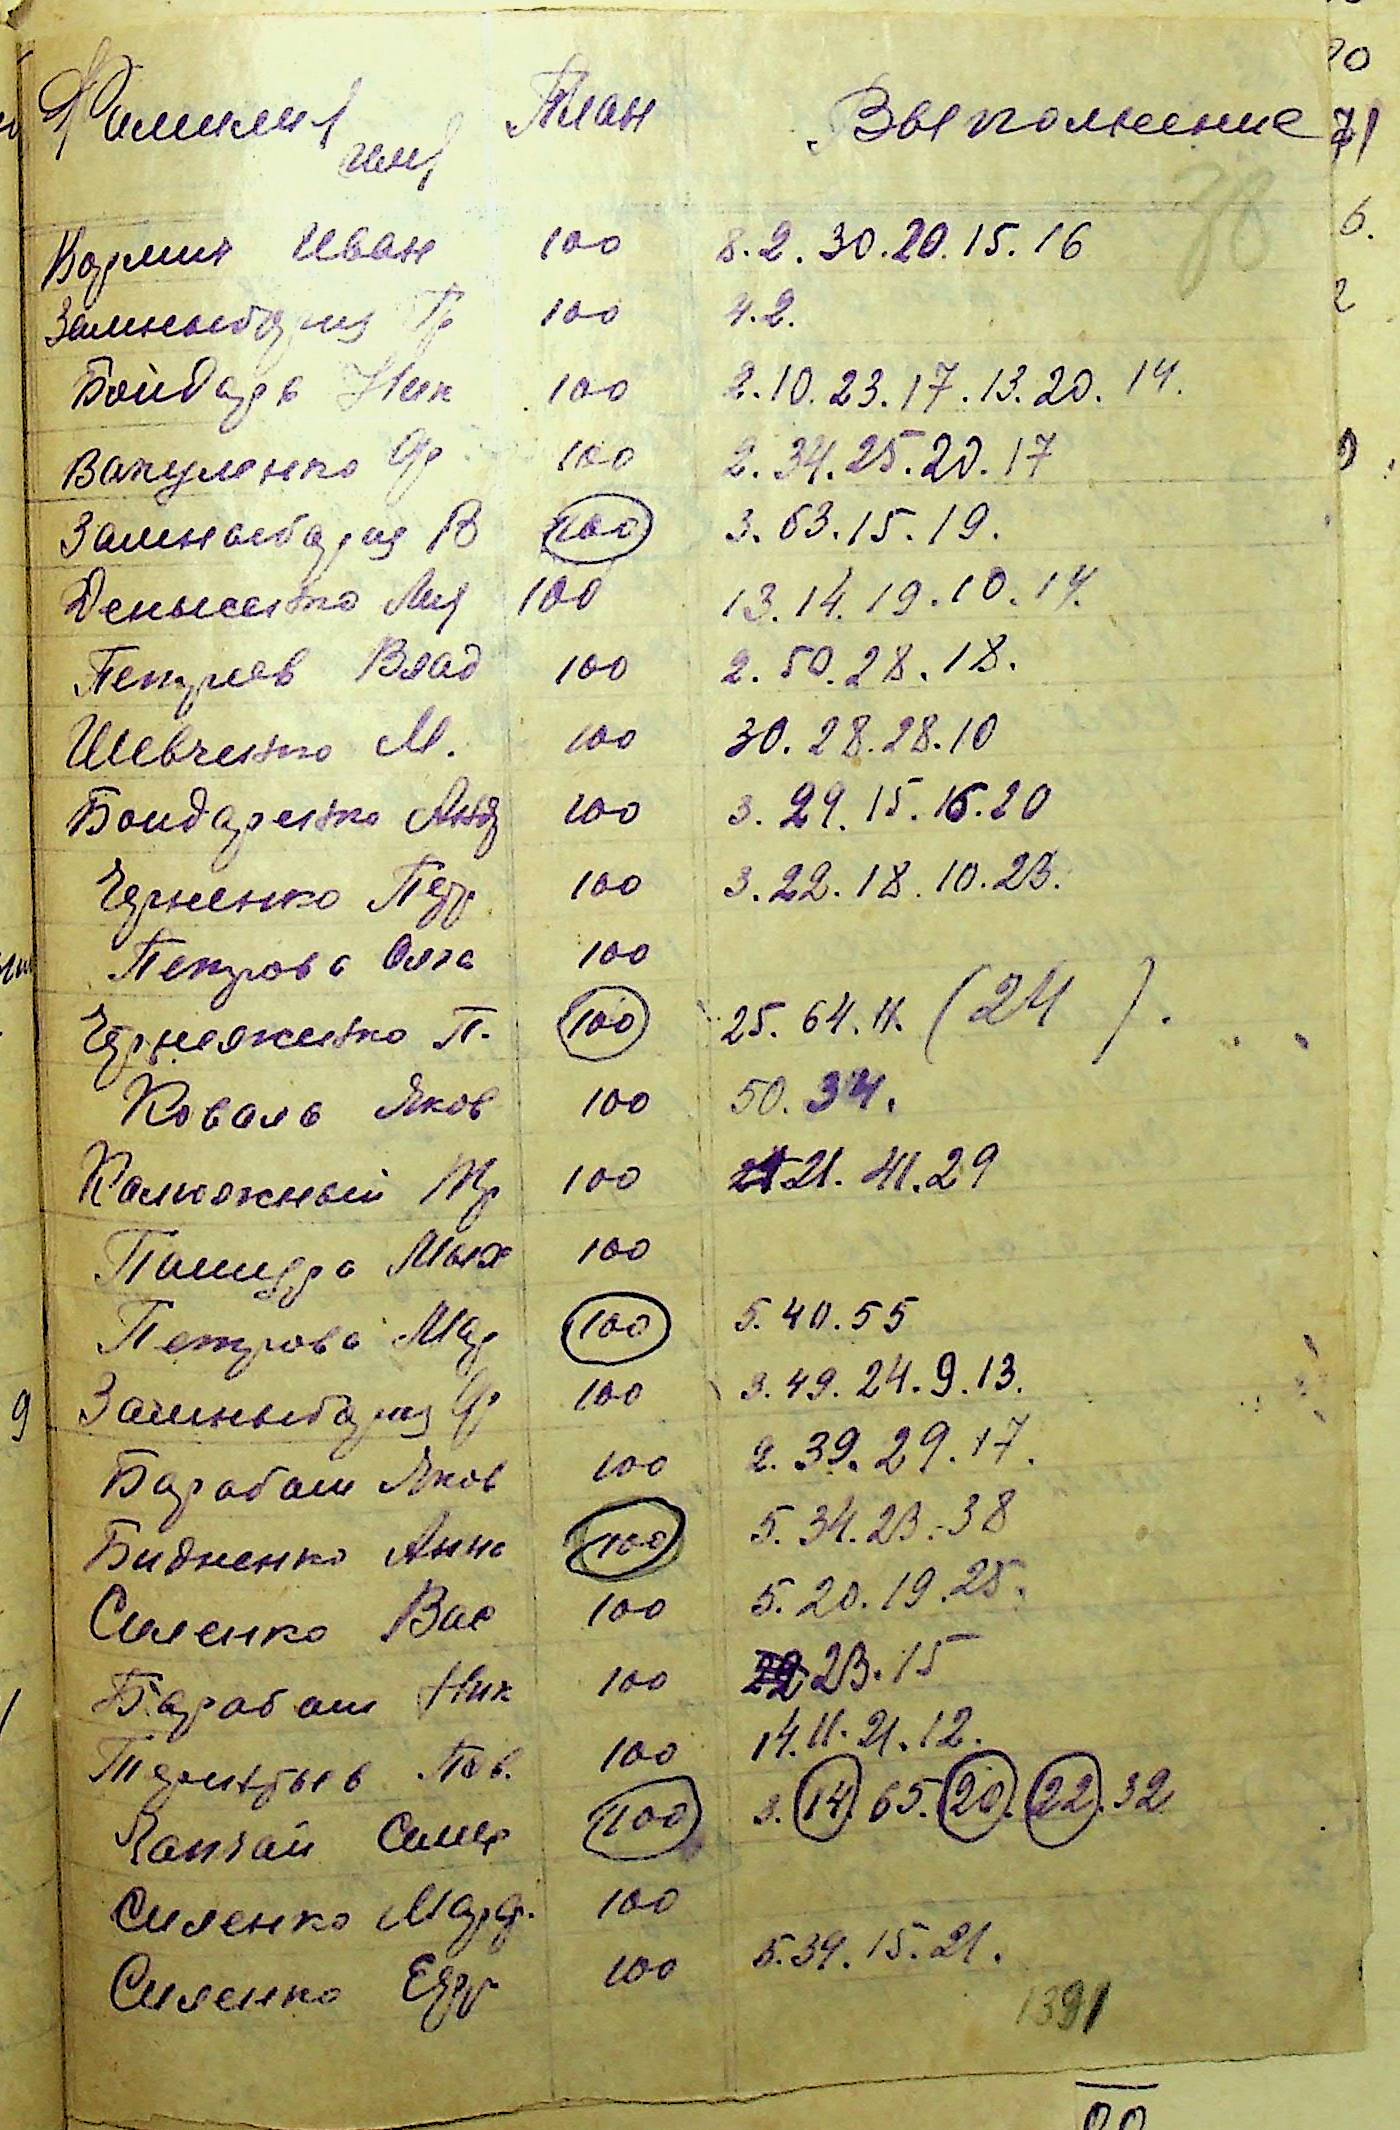 Фамилия имя План Выполнение
38
Кармин Иван 100 8.2.30.20.15.16
Замныборщ Гр 100 4.2.
Бойдарь Ник 100 2.10.23.17.13.20.14.
Вакуленко Ф 100 2.34.25.20.17
Замныборщ В 100 3.63.15.19.
Денысенко 100 13.14.19.10.14.
Петров Влад 100 2.50.28.18.
Шевченко М. 100 30.28.28.10
Бондаренко Анд 100 3.29.15.16.20
Черненко Пед 100 3.22.18.10.23.
Петрова Олга 100
П. 100 25.64.11. (24).
Коваль Яков 100 50.34.
Калюжный Гр 100 21.41.29
Мых 100
Петрова Мар 100 5.40.55
Замныборщ Ф 100 3.49.24.9.13.
Барабаш Яков 100 2.39.29.17.
Бидненко Анна 100 5.34.23.38
Силенко Вас 100 5.20.19.25.
Барабаш Ник 100 23.15
Терентьев Пав. 100 14.11.21.12.
Чапчай Семен 100 3.14.65.20.22.32
Силенко Марф. 100
Силенко Едр 100 5.39.15.21.
1391